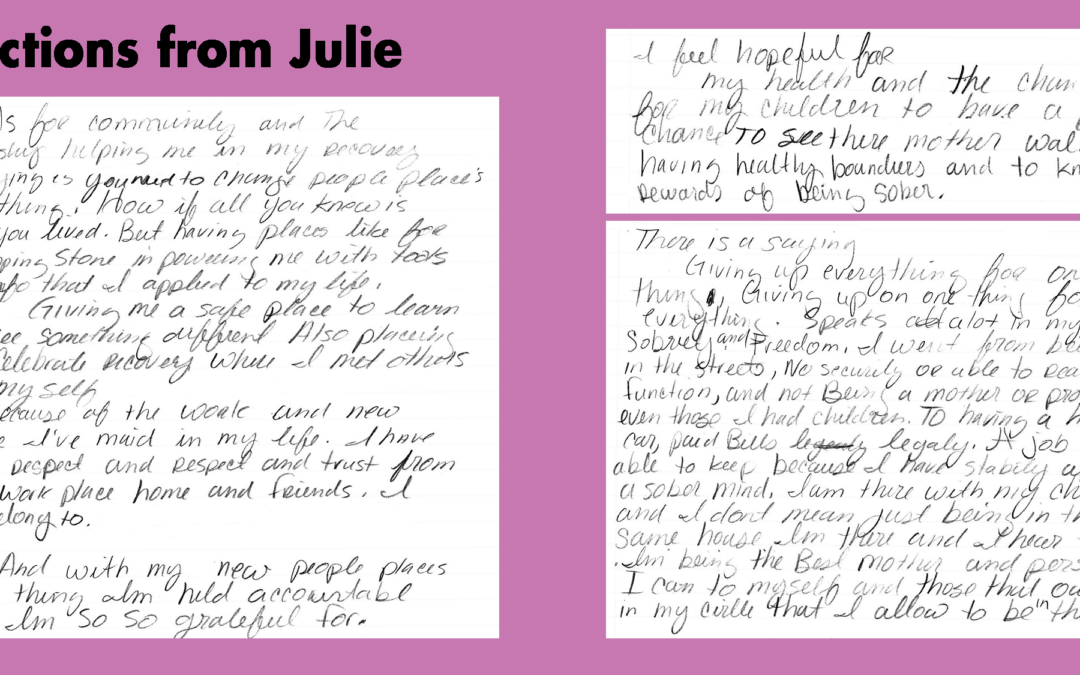 ctions from Julie
ds for community and the
ship helping me in my recovery
ying is you need to change people place's
thing. How if all you know is
you lived. But having places like for
pping Stone in powering me with tools
nfo that I applied to my life.
Giving me a safe place to learn
ee something different Also placeing
Celebrate recovery where I met others
myself
ecause of the work and new
e I've maid in my life. I have
respect and respect and trust from
work place home and friends. I
elong to.
And with my new people places
thing aIm held accountable
Im So So grateful for.
I feel hopeful for
my health and the chan
for my children to have a
Chance TO see there mother wal
having healthy bounders and to kn
rewards of being sober.
There is a saying
Giving up everything for on
thing, Giving up on one thing fo
everything. Speaks alot in my
Sobriety and Freedom. I went from be
in the streets, No security or able to
function, and not Being a mother or pro
even those I had children. TO having a h
car, paid Bills legaly. A job
able to keep because I have stabily a
a sober mind. I am there with my ch
and I dont mean just being in th
Same house Im there and I hear
Im being the Best mother and pers
I can to myself and those that a
in my cirlle that I allow to be "th